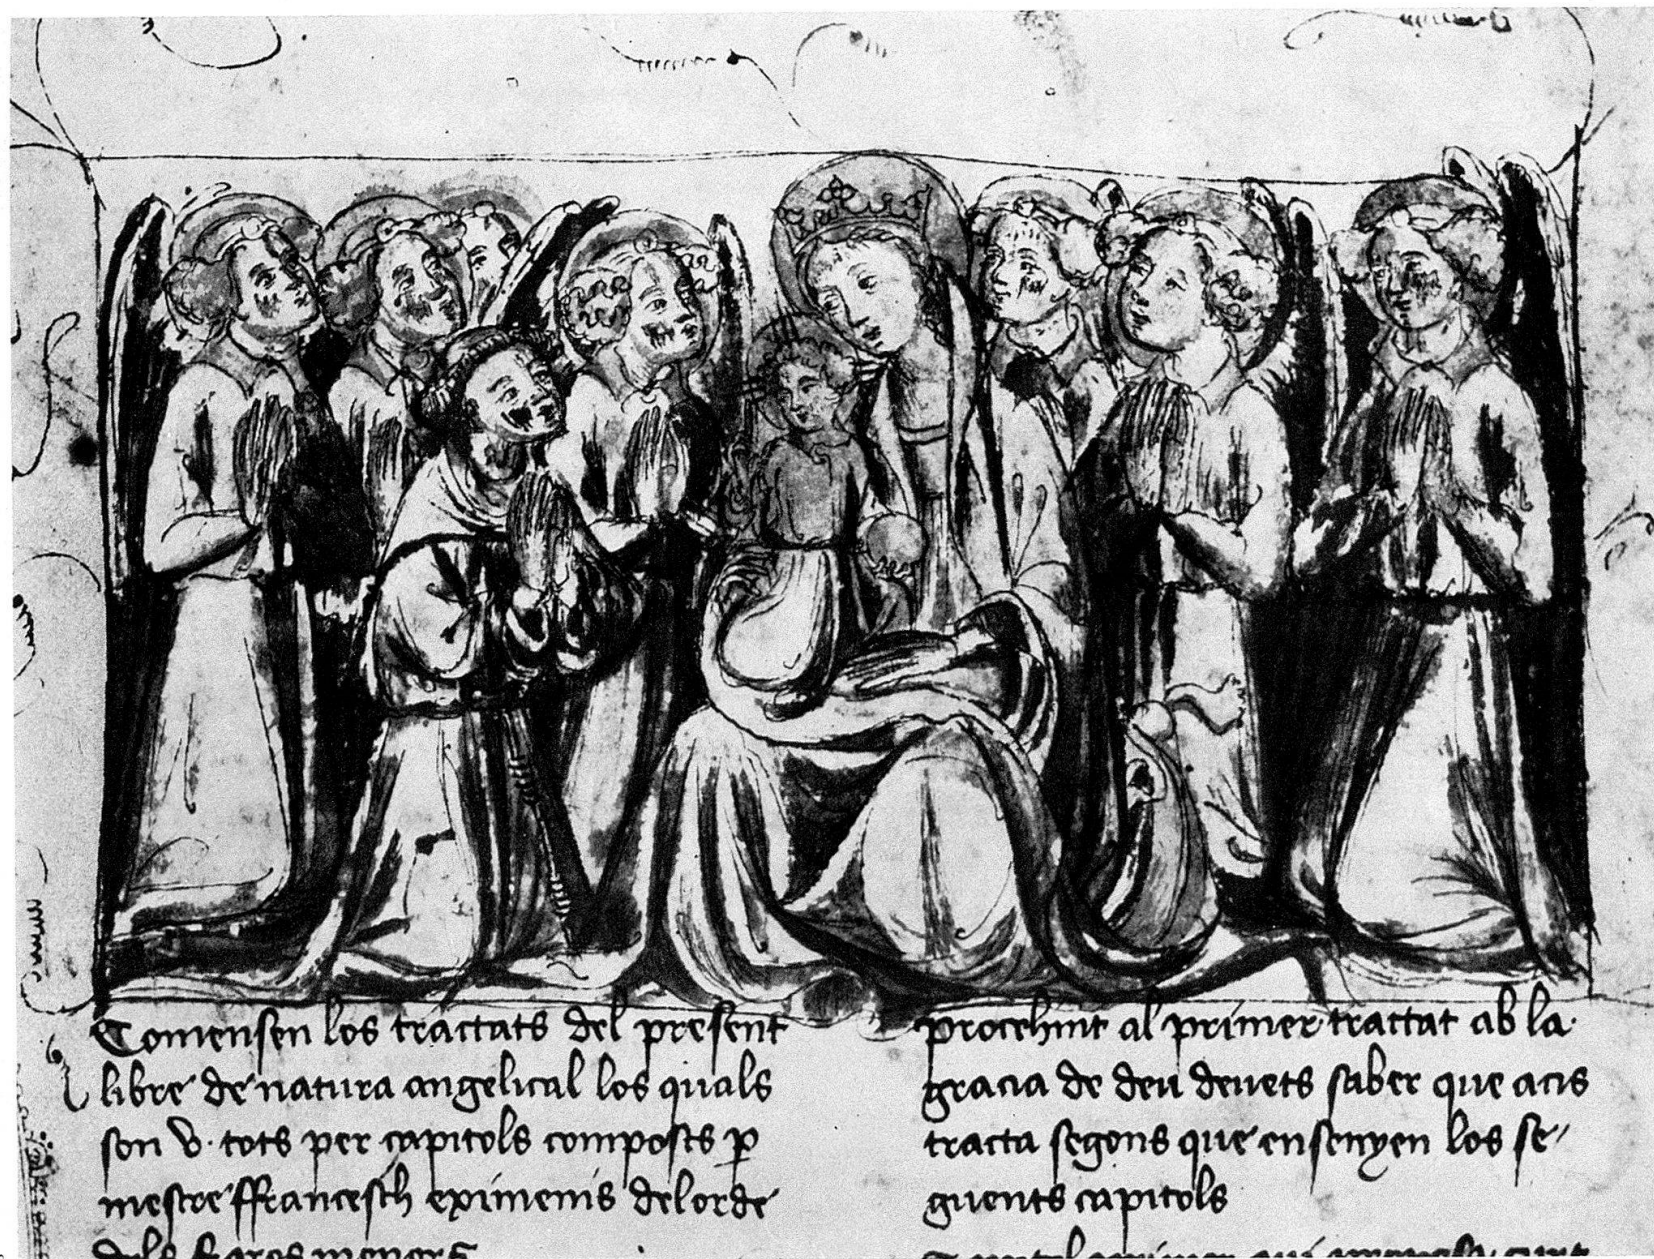 Comensen los tractats del present
libre de natura angelical los quals
son v. tots per capitols composts p
mestre ffrancesch eximenis del orde
dels frares menors
procehint al primer tractat ab la
gracia de deu deuets saber que acis
tracta segons que ensenyen los se/
guents capitols
Capitol primer qui